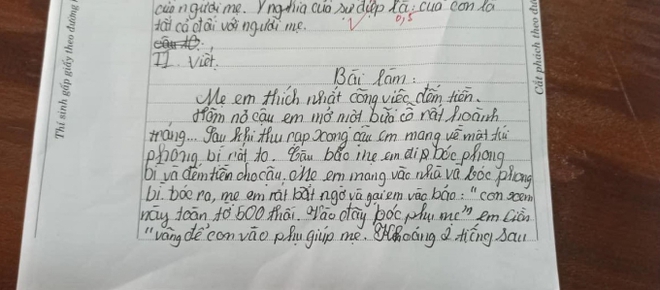 của người mẹ. Ý nghĩa của sự đáp là: của con là
tất cả đối với người mẹ.
0,5
câu 10.
II. Viết.
Bài làm:
Mẹ em thích nhất công việc đếm tiền.
Hôm nọ cậu em mở một bữa cỗ rất hoành
tráng... Sau khi thu rạp xong cậu em mang về một túi
phong bì rất to. Cậu bảo mẹ em dịp bóc phong
bì và đếm tiền cho cậu. Mẹ em mang vào nhà và bóc phong
bì. bóc ra, mẹ em rất bất ngờ và gọi em vào bảo: "con xem
này toàn tờ 500 thôi. Vào đây bóc phụ mẹ" em liền
"vâng để con vào phụ giúp mẹ. Khoảng 2 tiếng sau
Thí sinh gấp giấy theo đường
Cắt phách theo đư